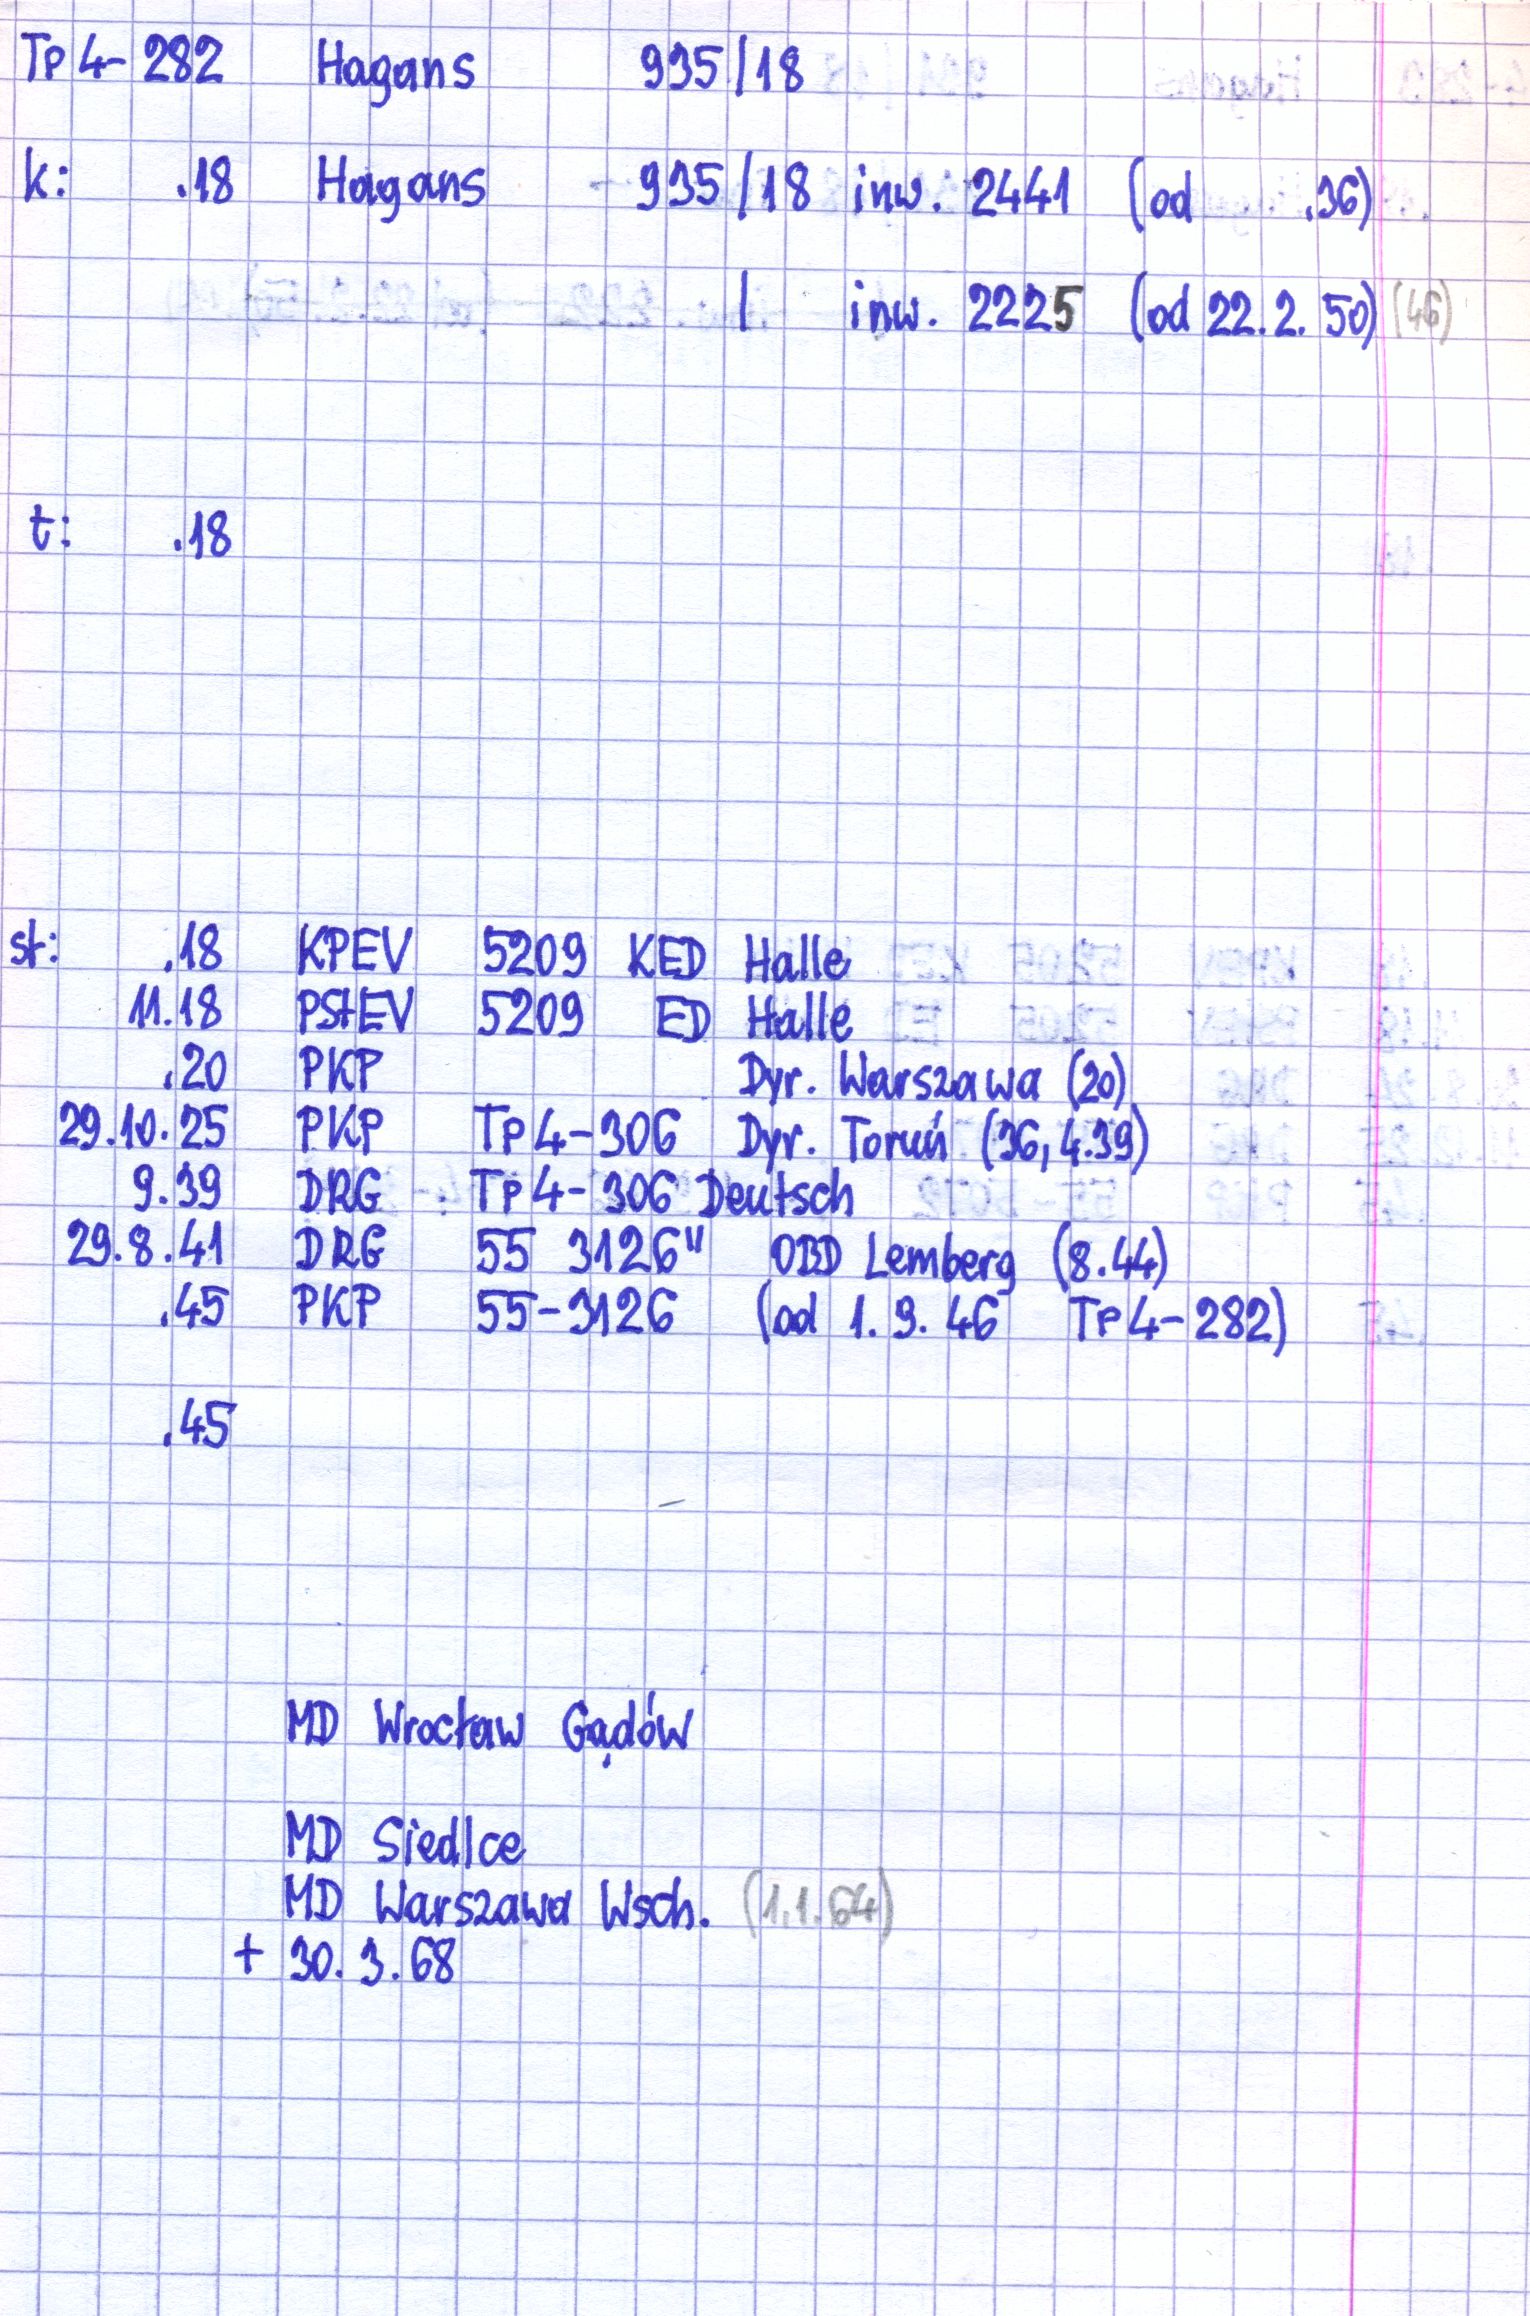 Tp 4-282 Hagans 935/18
k: .18 Hagans 935/18 inw. 2441 (od .36)
/ inw. 2225 (od 22.2.50) (46)
t: .18
st: .18 KPEV 5209 KED Halle
11.18 PStEV 5209 ED Halle
.20 PKP Dyr. Warszawa (20)
29.10.25 PKP Tp 4-306 Dyr. Toruń (36, 4.39)
9.39 DRG Tp 4-306 Deutsch
29.8.41 DRG 55 3126" OBD Lemberg (8.44)
.45 PKP 55-3126 (od 1.9.46 Tp 4-282)
.45
MD Wrocław Gądów
MD Siedlce
MD Warszawa Wsch. (1.1.64)
+ 30.3.68